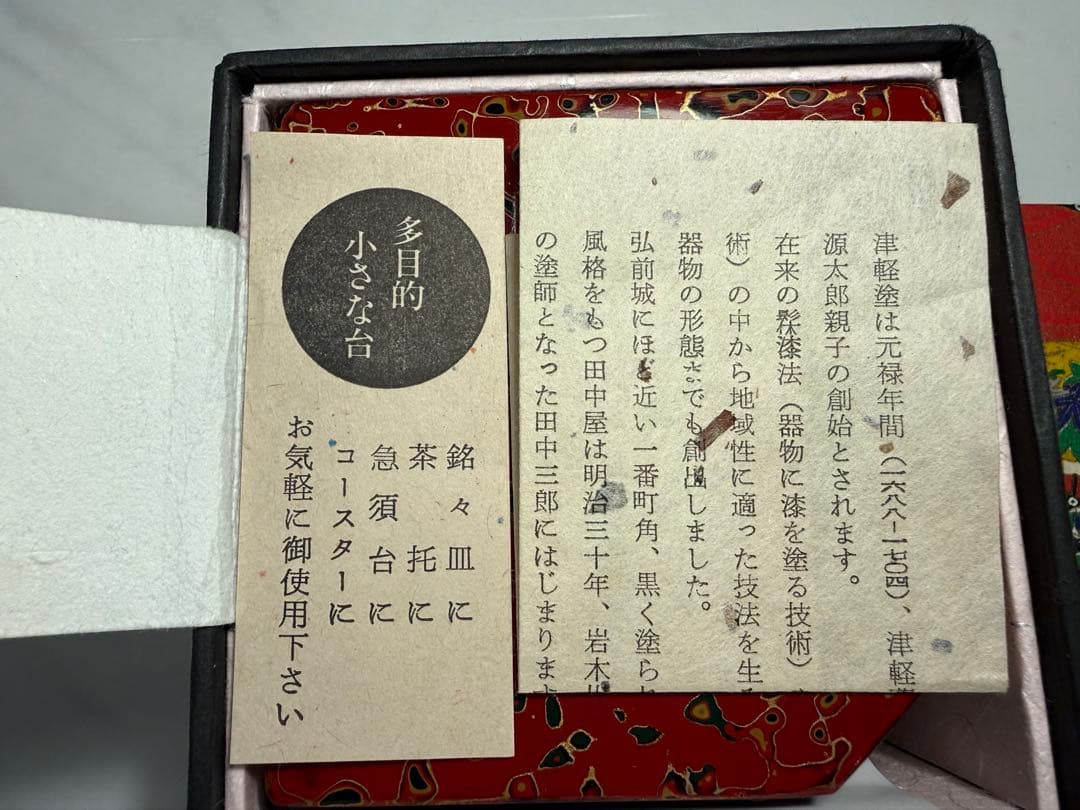 津軽塗は元禄年間（一六八八ー一七〇四）、津軽
源太郎親子の創始とされます。
在来の髹漆法（器物に漆を塗る技術）
術）の中から地域性に適った技法を生
器物の形態までも創出しました。
弘前城にほど近い一番町角、黒く塗られ
風格をもつ田中屋は明治三十年、岩木
の塗師となった田中三郎にはじまります
多目的
小さな台
銘々皿に
茶托に
急須台に
コースターに
お気軽に御使用下さい